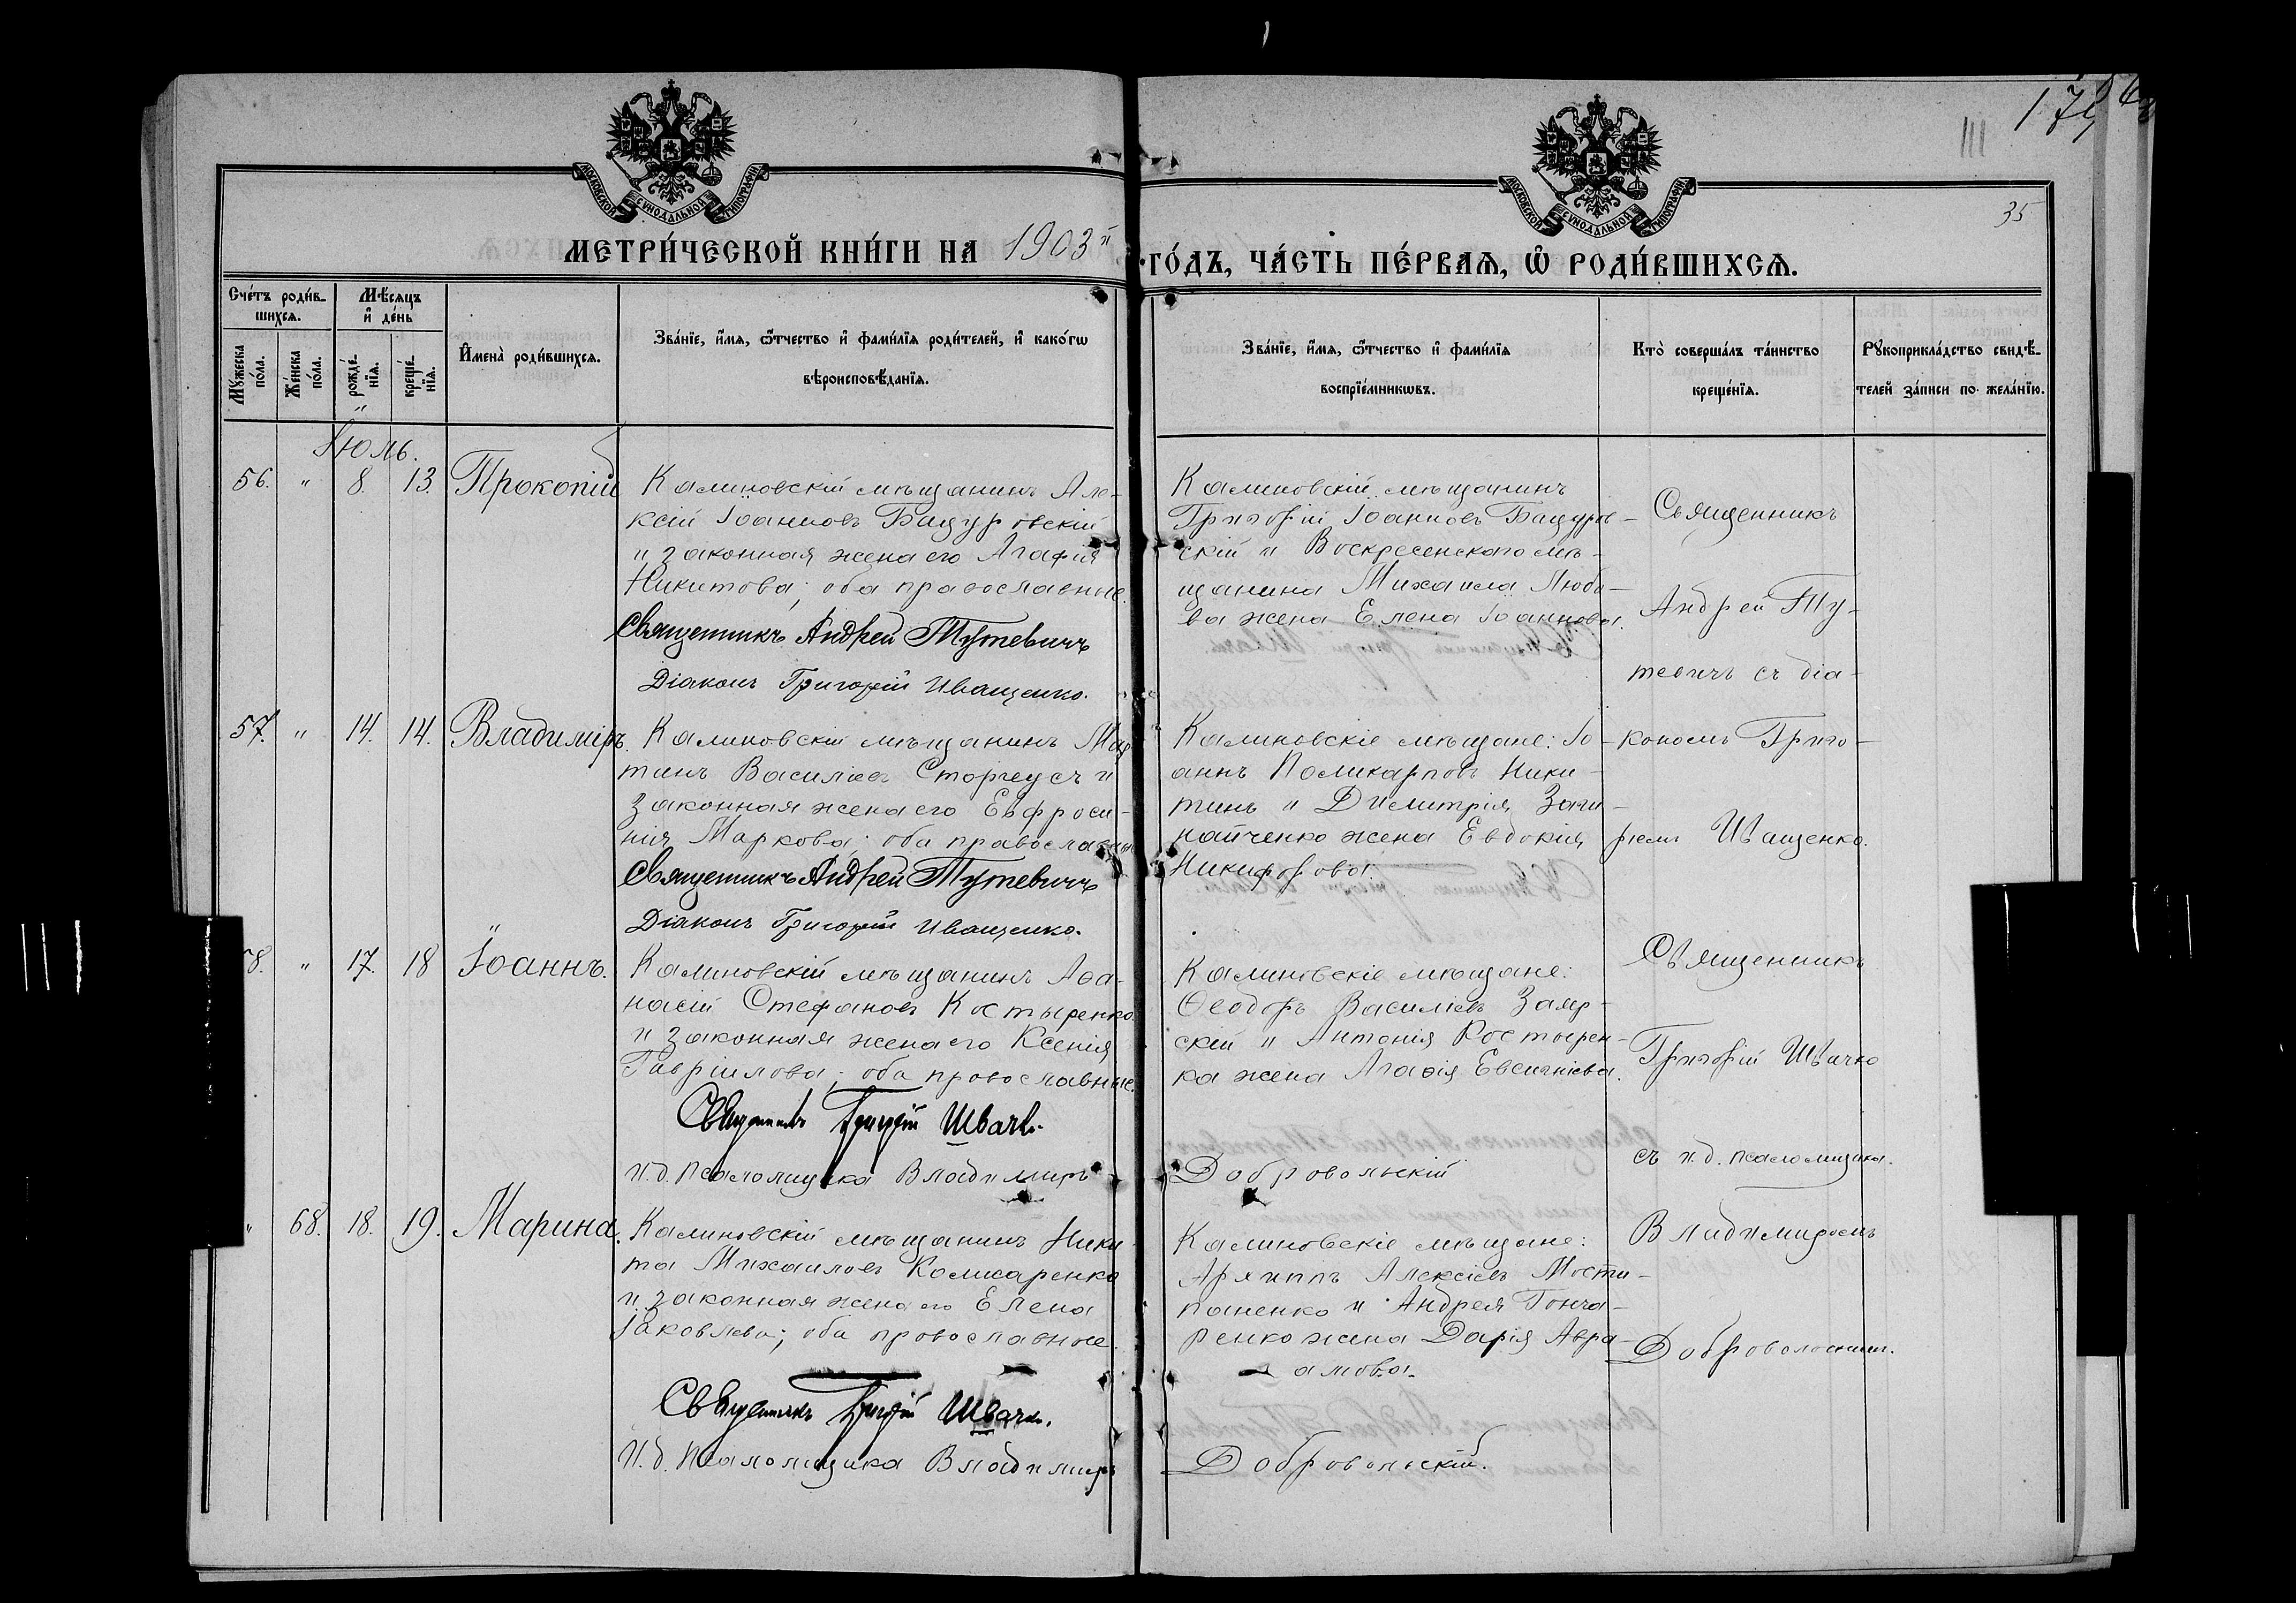 35
III
МОСКОВСКОЙ СѴНОДАЛЬНОЙ ТИПОГРАФІИ
МОСКОВСКОЙ СѴНОДАЛЬНОЙ ТИПОГРАФІИ
МЕТРИ́ЧЕСКОЙ КНИ́ГИ НА 1903й ГО́ДЪ, ЧА́СТЬ ПЕ́РВАѦ, Ѡ҆ РОДИ́ВШИХСѦ.
Сче́тъ роди́в-
шихсѧ.
Мѣ́сѧцъ
и҆ де́нь
Мꙋ́жеска по́ла.
Же́нска по́ла.
рожде́-
нїѧ.
креще́-
нїѧ.
И҆мена̀ роди́вшихсѧ.
Зва́нїе, и҆́мѧ, ѻ҆́тчество и҆ фами́лїѧ роди́телей, и҆ како́гѡ
вѣроисповѣ́данїѧ.
Зва́нїе, и҆́мѧ, ѻ҆́тчество и҆ фами́лїѧ
воспрїе́мникѡвъ.
Кто̀ соверша́лъ та́инство
креще́нїѧ.
Рꙋкоприкла́дство свидѣ́-
телей за́писи по жела́нїю.
Іюль.
56. " 8. 13. Прокопій
Калиновскій мѣщанинъ Але-
ксій Іоанновъ Бацуровскій
и законная жена его Агафія
Никитова; оба православные.
Священникъ Андрей Тутевичъ
Діаконъ Григорій Иващенко.
Калиновскій мѣщанинъ
Григорій Іоанновъ Бацуров-
скій и Воскресенскаго мѣ-
щанина Михаила Люби-
ва жена Елена Іоаннова.
Священникъ
Андрей Ту-
тевичъ съ діа-
кономъ Григо-
ріемъ Иващенко.
57. " 14. 14. Владиміръ.
Калиновскій мѣщанинъ Мар
тинъ Василіевъ Сторчеусъ и
законная жена его Евфроси-
нія Маркова; оба православны
Священникъ Андрей Тутевичъ
Діаконъ Григорій Иващенко.
Калиновскіе мѣщане: Іо-
аннъ Поликарповъ Ники-
тинъ и Димитрія Заги-
найченко жена Евдокія
Никифорова.
8. " 17. 18 Іоаннъ.
Калиновскій мѣщанинъ Аѳа-
насій Стефановъ Костыренко
и законная жена его Ксенія
Гавріилова; оба православные.
Священникъ Григорій Швачко.
И.д. псаломщика Владимиръ Добровольскій
Калиновскіе мѣщане:
Ѳеодоръ Василіевъ Заяр-
скій и Антонія Костырен-
ка жена Агафія Евсигніева.
Священникъ
Григорій Швачко
съ и.д. псаломщика.
Владимиромъ
Добровольскимъ.
" 68. 18. 19. Марина.
Калиновскій мѣщанинъ Ники-
та Михаиловъ Комисаренко
и законная жена его Елена
Іаковлева; оба православные.
Священникъ Григорій Швачко.
И.д. псаломщика Владимиръ Добровольскій.
Калиновскіе мѣщане:
Архиппъ Алексіевъ Мости-
паненко и Андрея Гонча-
ренко жена Дарія Авра-
амова.